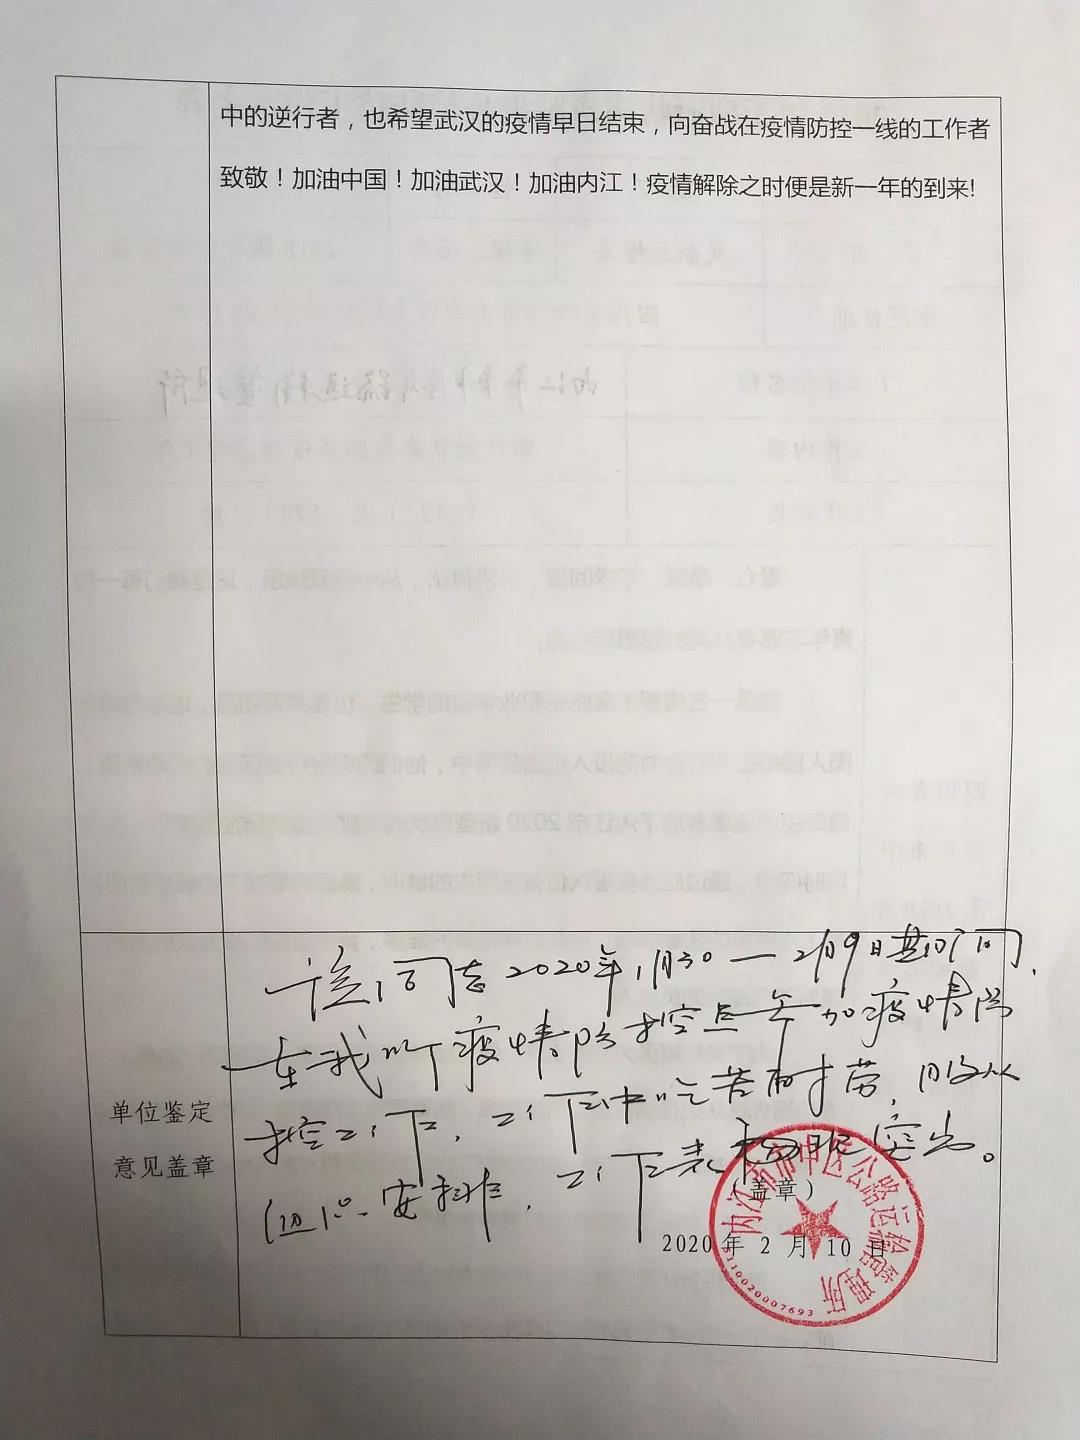 中的逆行者，也希望武汉的疫情早日结束，向奋战在疫情防控一线的工作者
致敬！加油中国！加油武汉！加油内江！疫情解除之时便是新一年的到来!
单位鉴定
意见盖章
该同志2020年1月30—2月9日期间,
在我所疫情防控点参加疫情防
控工作，工作中吃苦耐劳，服从
安排，工作表现突出。
（盖章）
2020 年 2 月 10 日
内江市市中区公路运输管理所
5110020007693